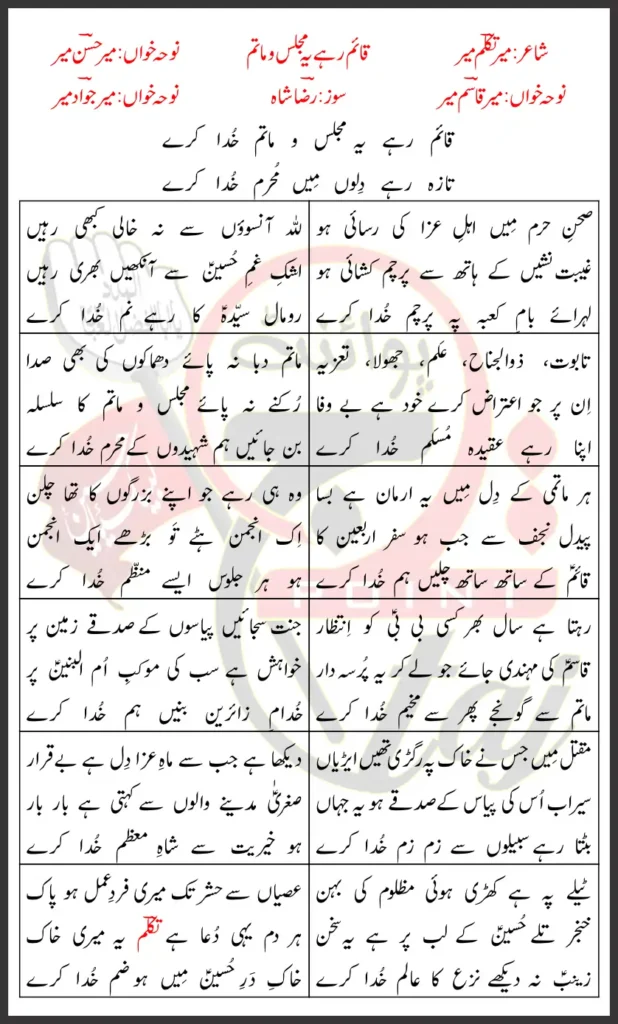 شاعر: میر تکلّم میر
قائم رہے یہ مجلس و ماتم
نوحہ خواں: میر حسن میر
نوحہ خواں: میر قاسم میر
سوز: رضا شاہ
نوحہ خواں: میر جواد میر
قائم رہے یہ مجلس و ماتم خُدا کرے
تازہ رہے دِلوں مِیں مُحرم خُدا کرے
صحنِ حرم مِیں اہلِ عزا کی رسائی ہو
غیبت نشیں کے ہاتھ سے پرچم کشائی ہو
لہرائے بامِ کعبہ پہ پرچم خُدا کرے
للہ آنسوؤں سے نہ خالی کبھی رہیں
اشکِ غمِ حُسینؑ سے آنکھیں بھری رہیں
رومال سیّدہؑ کا رہے نم خُدا کرے
تابوت، ذوالجناح، عَلم، جھولا، تعزیہ
اِن پر جو اعتراض کرے خود ہے بے وفا
اپنا رہے عقیدہ مُسلّم خُدا کرے
ماتم دبا نہ پائے دھماکوں کی بھی صدا
رُکنے نہ پائے مجلس و ماتم کا سلسلہ
بن جائیں ہم شہیدوں کے محرم خُدا کرے
ہر ماتمی کے دِل مِیں یہ ارمان ہے بسا
پیدل نجف سے جب ہو سفر اربعین کا
قائمؑ کے ساتھ ساتھ چلیں ہم خُدا کرے
وہ ہی رہے جو اپنے بزرگوں کا تھا چلن
اِک انجمن ہٹے تَو بڑھے ایک انجمن
ہو ہر جلوس ایسے منظّم خُدا کرے
رہتا ہے سال بھر کسی بی بیؑ کو اِنتظار
قاسمؑ کی مہندی جائے جو لے کر یہ پُرسہ دار
ماتم سے گونجے پھر سے مخیم خُدا کرے
جنت سجائیں پیاسوں کے صدقے زمین پر
خواہش ہے سب کی موکبِ اُم البنینؑ پر
خُدامِ زائرین بنیں ہم خُدا کرے
مقتل مِیں جس نے خاک پہ رگڑی تھیں ایڑیاں
سیراب اُس کی پیاس کے صدقے ہو یہ جہاں
بٹتا رہے سبیلوں سے زم زم خُدا کرے
دیکھا ہے جب سے ماہِ عزا دِل ہے بے قرار
صغریٰؑ مدینے والوں سے کہتی ہے بار بار
ہو خیریت سے شاہِ معظم خُدا کرے
ٹیلے پہ ہے کھڑی ہوئی مظلوم کی بہن
خنجر تلے حُسینؑ کے لب پر ہے یہ سخن
زینبؑ نہ دیکھے نزع کا عالم خُدا کرے
عصیاں سے حشر تک میری فردِ عمل ہو پاک
ہر دم یہی دُعا ہے تکلّم یہ میری خاک
خاکِ دَرِ حُسینؑ مِیں ہو ضم خُدا کرے
POINT